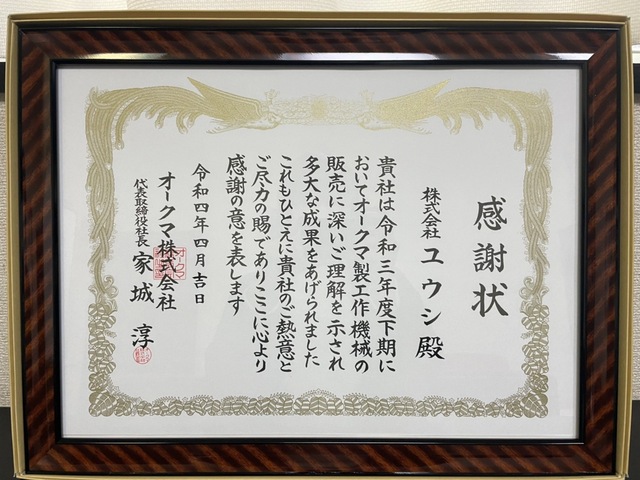 感謝状
株式会社 ユウシ 殿
貴社は令和三年度下期に
おいてオークマ製工作機械の
販売に深いご理解を示され
多大な成果をあげられました
これもひとえに貴社のご熱意と
ご尽力の賜でありここに心より
感謝の意を表します
令和四年四月吉日
オークマ株式会社
代表取締役社長 家城 淳